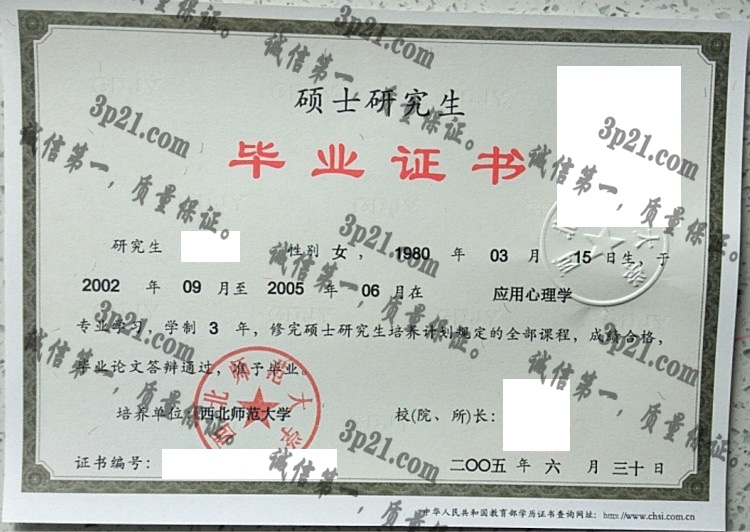 硕士研究生
毕业证书
研究生 性别 女，1980 年 03 月 15 日生，于
2002 年 09 月至 2005 年 06 月在 应用心理学
专业学习，学制 3 年，修完硕士研究生培养计划规定的全部课程，成绩合格，
毕业论文答辩通过，准予毕业。
培养单位：西北师范大学 校(院、所)长：
证书编号： 二〇〇五 年 六 月 三十 日
中华人民共和国教育部学历证书查询网址：http://www.chsi.com.cn
西北师范大学
3p21.com
诚信第一，质量保证。
3p21.com
诚信第一，质量保证。
3p21.com
诚信第一，质量保证。
3p21.com
诚信第一，质量保证。
3p21.com
诚信第一，质量保证。
3p21.com
诚信第一，质量保证。
3p21.com
诚信第一，质量保证。
3p21.com
诚信第一，质量保证。